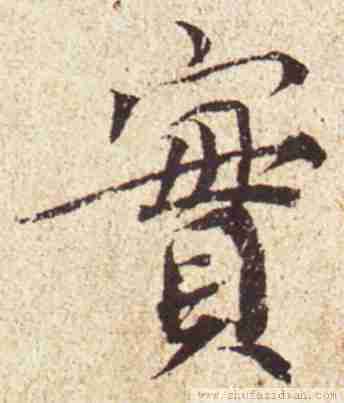 實
www.shufazidian.com